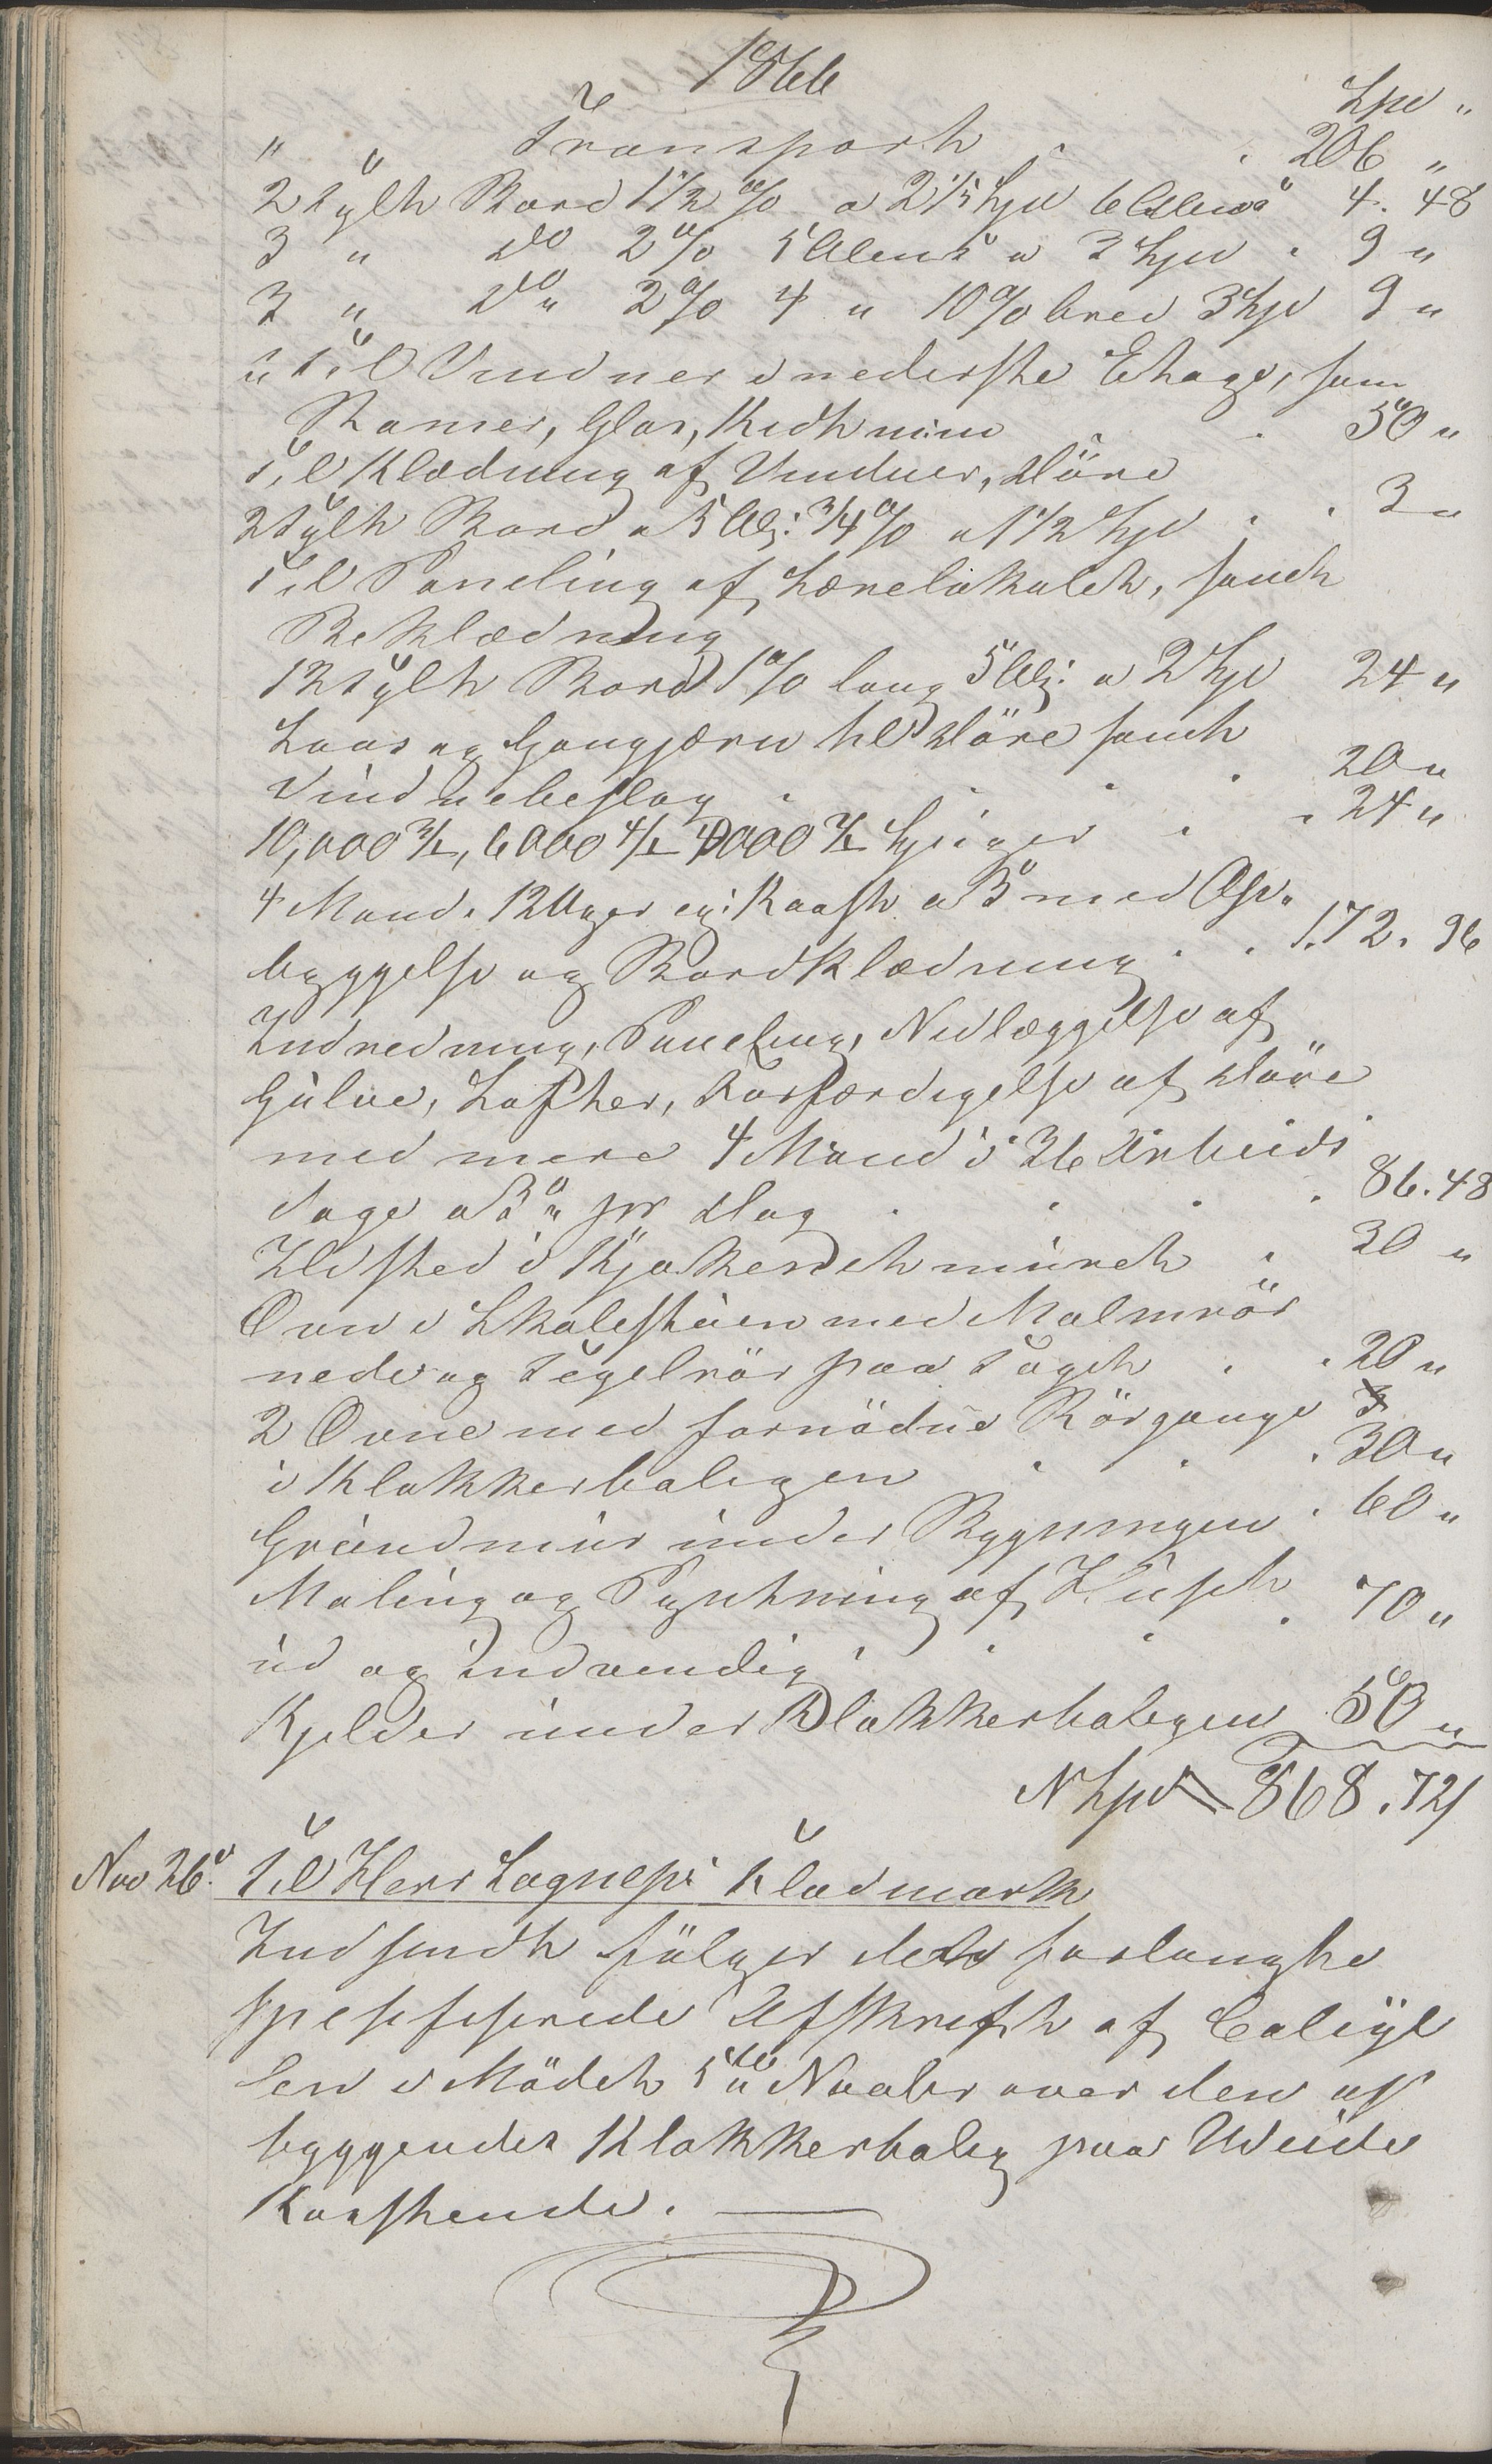 1866
Spd "
" " Transport . . 206 "
2 Tylft Bord 1 1/2 " a 2 1/5 Spd 6 Alens 4. 48
3 " Do 2 " 5 Alens a 3 Spd . 9 "
3 " Do " 2 " 4 " 10 " bred 3 Spd 9 "
" Til Vinduer i nederste Etage, som
Ramer, Glas, Kidt m:m . . 50 "
Til Klædning af Vinduer, Döre
2 Tylft Bord a 5 Al: 3/4 " a 1 1/2 Spd . . 3 "
Til Paneling af Lærelokalet, samt
Beklædning
12 Tylft Bord 1 " lang 5 Al: a 2 Spd 24 "
Laas og Gangjærn til Döre samt
Vinduebeslag . . . 20 "
10,000, 6000 4000 Spiger . . 24 "
4 Mand i 12 Uger eg: Kaast a 3 med Op-
byggelse og Bordklædning . . 172. 96
Indredning, Paneling, Nedlæggelse af
Gulve, Lofter, Forfærdigelse af Döre
med mere 4 Mand i 36 Arbeids
dage a 3 " pr Dag . . . 86. 48
Ildsted i Kjøkkenet muret . 30 "
Ovn i Skolestuen med Malmrör
nede og Tegelrör paa Taget . . 20 "
2 Ovne med fornödne Rörgange
i Klokkerboligen . . . 30 "
Grundmur under Bygningen . 60 "
Maling og Pyntning af Huset
ud og indvendig . . . 70 "
Kjelder under Klokkerboligen 50 "
Spd 868. 72
Nov 26. Til Herr Sogneps Kladmark
Indsendt fölger den forlangte
spesifiserede Afskrift af Calcyl
len i Mödet 5te Novbr over den op
byggendes Klokkerbolig paa Utvide
Kaastende.